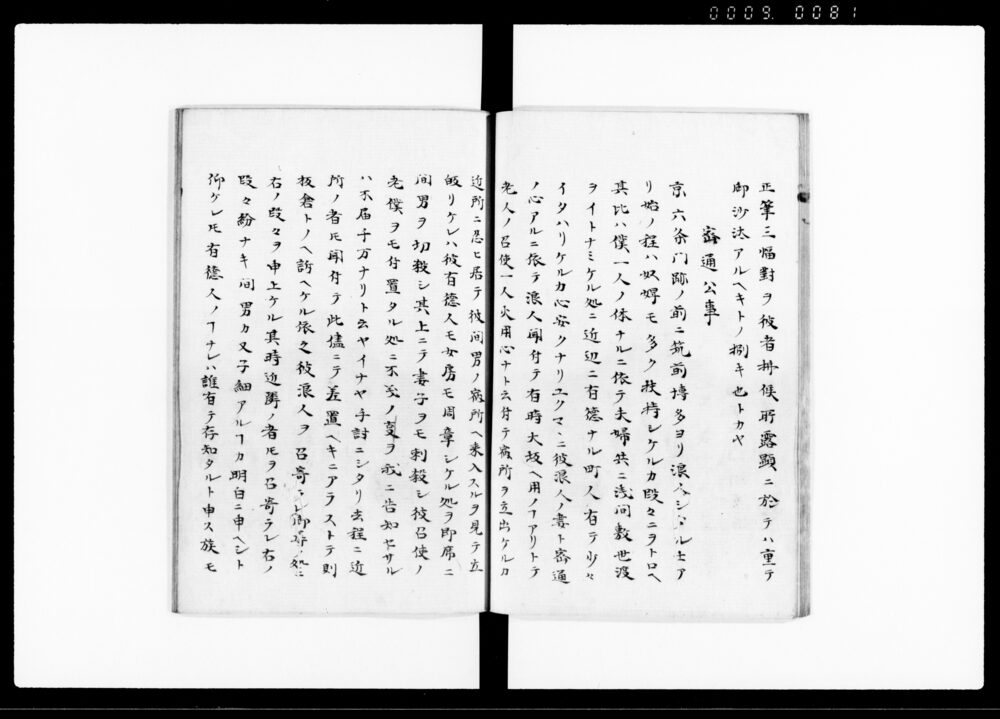 0009. 0081
正筆三幅對ヲ彼者拵候所露顯ニ於テハ重テ
御沙汰アルヘキトノ捌キ也トカヤ
密通公事
京六条門跡ノ前ニ筑前博多ヨリ浪人シタル士ア
リ始ノ程ハ奴婢モ多ク扶持シケルカ段々ニヲトロヘ
其比ハ僕一人ノ体ナルニ依テ夫婦共ニ浅間敷世渡
ヲイトナミケル処ニ近辺ニ有徳ナル町人有テ少々
イタハリケルカ心安クナリユクマヽニ彼浪人ノ妻ト密通
ノ心アルニ依テ浪人聞付テ有時大坂ヘ用ノヿアリトテ
老人ノ召使一人火用心ナト云付テ病所ヲ立出ケルカ
近所ニ忍ヒ居テ彼間男ノ病所ヘ来入スルヲ見テ立
皈リケレハ彼有徳人モ女房モ周章シケル処ヲ即席ニ
間男ヲ切殺シ其上ニテ妻子ヲモ刺殺シ彼召使ノ
老僕ヲモ付置タル処ニ不義ノ夏ヲ我ニ告知セサル
ハ不届千万ナリト云ヤイナヤ手討ニシタリ去程ニ近
所ノ者共聞付テ此儘ニテ差置ヘキニアラストテ則
板倉トノヘ訴ヘケル依之彼浪人ヲ召寄ラレ御尋ノ処ニ
右ノ段々ヲ申上ケル其時近隣ノ者共ヲ召寄ラレ右ノ
段々紛ナキ間男カ又子細アルヿカ明白ニ申ヘシト
仰ケレ共有徳人ノヿナレハ誰有テ存知タルト申ス族モ